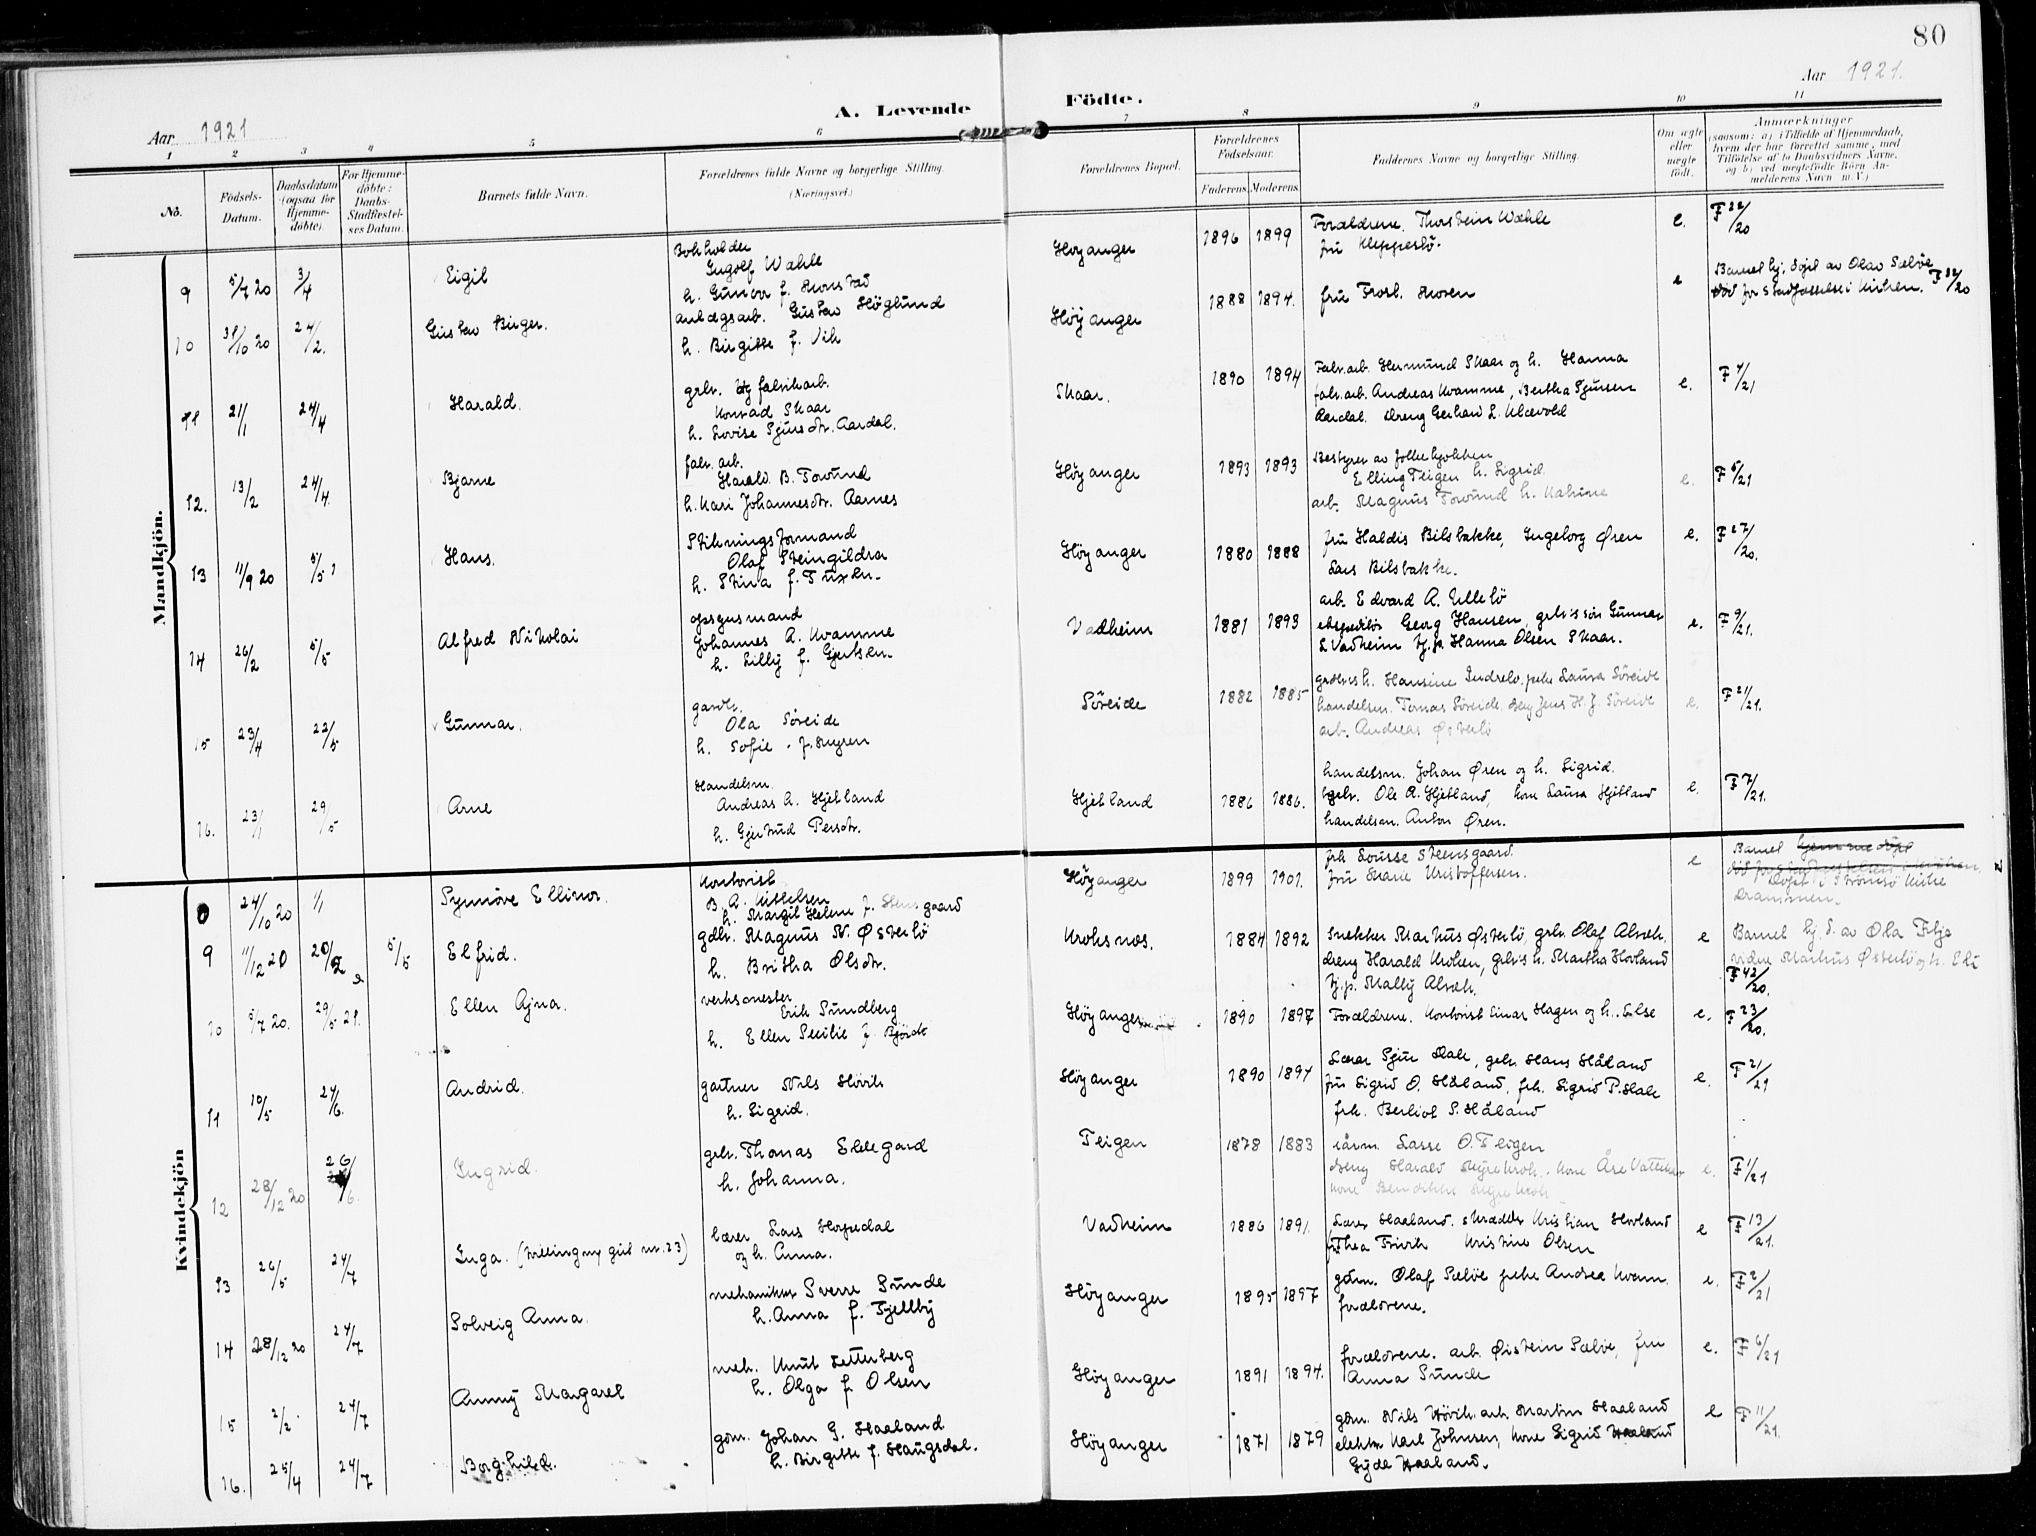 80
Aar 1921.
Aar 1921
A. Levende Födte.
1 2 3 4 5 6 7 8 9 10 11
No.
Födsels-Datum.
Daabsdatum (ogsaa for Hjemme-døbte).
For Hjemme-døbte: Daabs-Stadfæstel-ses Datum.
Barnets fulde Navn.
Forældrenes fulde Navne og borgerlige Stilling. (Næringsvei.)
Forældrenes Bopæl.
Forældrenes Födselsaar.
Faderens. Moderens.
Faddernes Navne og borgerlige Stilling.
Om ægte eller uægte födt.
Anmærkninger
(saasom: a) i Tilfælde af Hjemmedaab,
hvem der har forrettet samme, med
Tilföielse af to Daabsvidners Navne,
og b) ved uægtefödte Börn An-
melderens Navn m. V.)
Mandkjön.
9 5/7 20 3/4 Eigil
Bokholder
Ingolf Wahle
h. Gunvor f. Monstad
Høyanger 1896 1899
Forældrene, Thorstein Wahle
fru Kleppestø.
e. F 22/20
10 31/10 20 24/2. Gustav Birger.
anlægsarb. Gustav Höglund
h. Birgitte f. Vik
Höyanger 1888 1894.
fru Frosl. Moren
e Barnet hj. døpt av Olav Sælöe
død for stadfæstelse i kirken. F 32/20
11 21/1 24/4 Harald.
grbr. og fabrikarb.
Konrad Skaar
h. Lovise Sjursdtr. Aardal.
Skaar. 1890 1894
Fabr.arb. Hermund Skaar og h. Hanna
fabr.arb. Andreas Kvamme, Bertha Sjursen
Aardal. dreng Gerhard L. Klævold
e. F 4/21
12. 13/2 24/4. Bjarne
fabr. arb.
Harald B. Torvund
h. Kari Johannesdtr. Aarnes
Höyanger 1893 1893
Bestyrer av folkekjøkken
Elling Fligen h. Sigrid
arb. Magnus Torvund h. Katrine
e. F 5/21
13 11/9 20 5/5 1 Hans.
Stikningsformand
Olaf Steingildra
h. Stina f. Tuxen.
Höyanger 1880 1888
fru Haldis Bilsbakke, Ingeborg Øren
Lars Bilsbakke.
e. F 27/20.
14 26/2 5/5 Alfred Nikolai
opsynsmand
Johannes A. Kvamme
h. Lilly f. Gjertsen.
Vadheim 1881 1893
arb. Edvard A. Ullebö
ekspeditör Georg Hansen, gbr's sön Gunnar
L Vadheim tj.p. Hanna Olsen Skaar.
e. F 9/21.
15 23/4 22/5 Gunnar.
gardbr.
Ola Söreide
h. Sofie f. Myren
Söreide 1882 1885
grdbrs h. Hansine Indrebö. pike Laura Söreide
handelsm. Tomas Söreide. dreng Jens H. J. Söreide
arb. Andreas Østerbö
e. F 21/21.
16. 23/1 29/5 Arne
Handelsm.
Andreas A. Hjetland
h. Gjertrud Persdtr.
Hjetland 1886 1886.
handelsm. Johan Øren og h. Sigrid.
gbr. Ole A. Hjetland, kone Laura Hjetland
handelsm. Anton Øren.
e. F 7/21.
Kvindekjön
8 24/10 20 1/1 Synnöve Ellinor.
Kontorist
B. A. Mikkelsen
h. Margit Helene f. Stensgaard
Höyanger 1899 1901.
frk Lousse Steensgaard.
fru Marie Kristoffersen.
e Barnet hjemmedöpt
död for stadfæstelsen i kirken
Døpt i Strömsö kirke
Drammen.
9 11/12 20 20/2 5/5 Elfrid.
gdbr. Magnus N. Østerbö
h. Britha Olsdtr.
Kroksnes. 1884 1892
Snekker Markus Østerbö, gbr. Olaf Alræk.
dreng Harald Kroken, gbr's h. Martha Hovland
tj.p. Mally Alræk.
e Barnet hj. d. av Ola Tilja
vidne Markus Østerbö og h. Eli
F 42/20.
10 5/7 20. 29/5 21. Ellen Ajna.
verksmester
Erik Sundberg
h. Ellen Secilie f. Fjörtoft
Höyanger 1890 1897
Forældrene. Kontorist Einar Hagen og h. Else
e. F 23/20.
11 10/5 24/6. Andrid.
gartner Nils Hövik
h. Sigrid.
Höyanger 1890 1894
Lærer Sjur Hale, gbr. Hans Håland
fru Sigrid O. Håland, frk. Sigrid P. Hale
frk. Berliot S. Håland
e. F 21/21
12 28/12 20 26/6. Ingrid.
gbr. Thomas Ellegard
h. Johanna.
Fligen 1878 1883
kårm. Lasse O. Fligen
dreng Harald Myrekrok. kone Åse Vattekar
kone Bendikke Myrekrok
e. F 1/21
13 26/5 24/7 Inga. (tvilling m. gut nr. 23)
lærer Lars Hopedal
og h. Anna.
Vadheim 1886 1891.
Lærer Haaland. skrædder Kristian Hovland
fr. Thea Frivik Kristine Olsen
e F 13/21.
14 28/12 20 24/7 Solveig Anna.
mekaniker Sverre Sunde
h. Anna f. Fjellby
Höyanger 1895 1897
gdm. Olaf Sælöe pike Andrea Kvam.
forældrene.
e. F 2/21
15 2/2. 24/7 Anny Margaret
mek. Knut Zetterberg
h. Olga f. Olsen
Höyanger 1891 1894.
forældrene. arb. Øistein Sælöe, fru
Anna Sunde
e. F 6/21
16. 25/4 24/7 Borghild.
gdm. Johan G. Haaland
h. Birgitte f. Haugsdal.
Höyanger 1871 1879
gdm. Nils Hövik. arb. Martin Haaland
elektr. Karl Johnsen, kone Sigrid Haaland
Gyda Haaland.
e F 11/21.